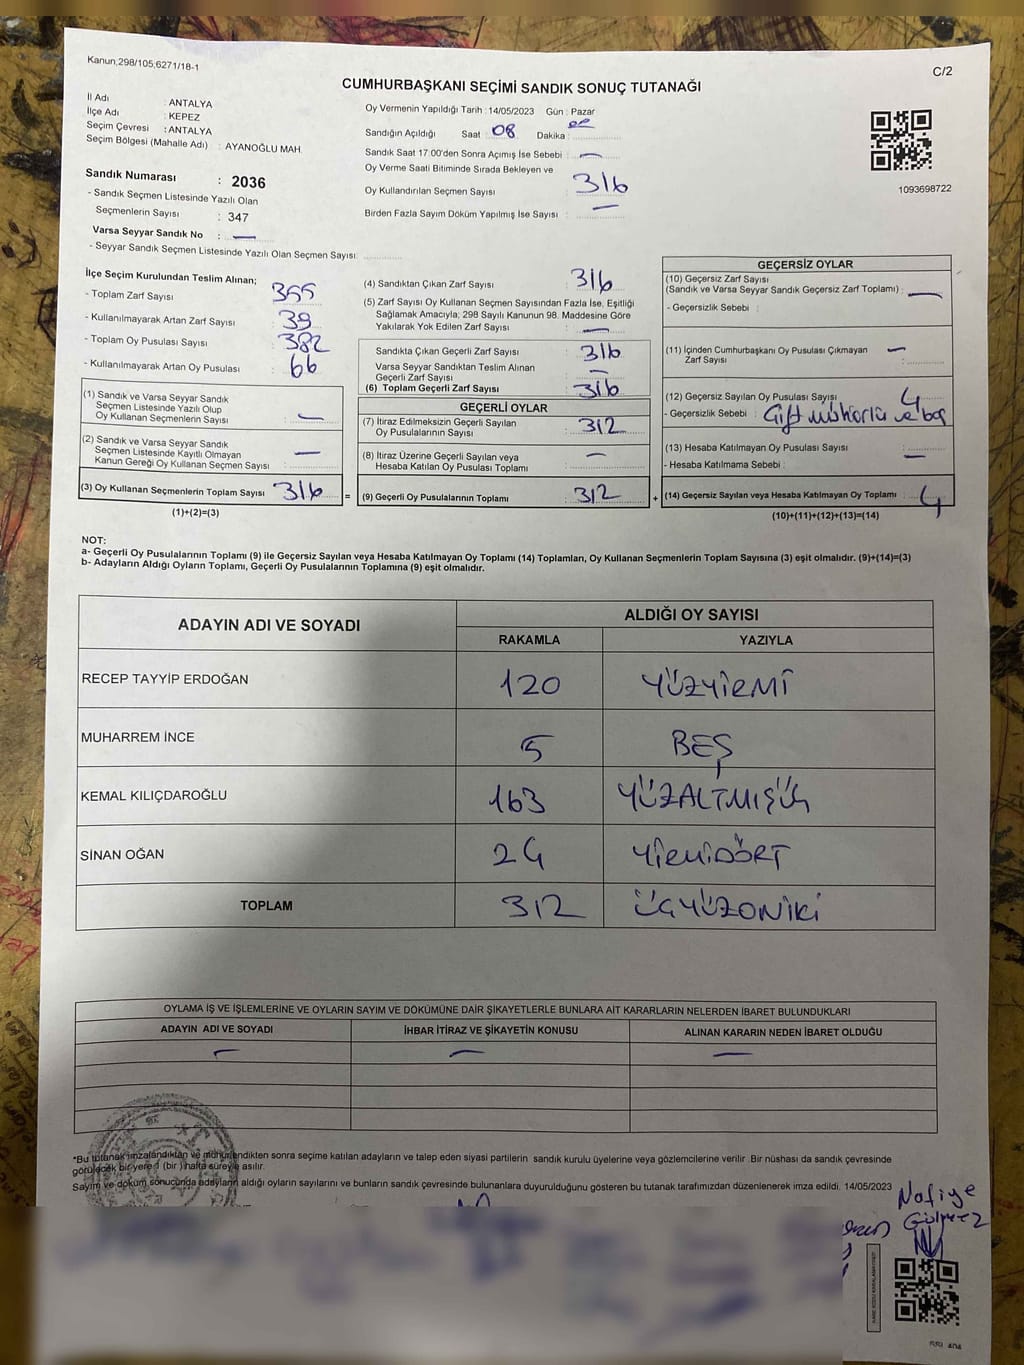 Kanun,298/105,6271/18-1
C/2
CUMHURBAŞKANI SEÇİMİ SANDIK SONUÇ TUTANAĞI
İl Adı : ANTALYA
İlçe Adı : KEPEZ
Seçim Çevresi : ANTALYA
Seçim Bölgesi (Mahalle Adı) : AYANOĞLU MAH.
Sandık Numarası : 2036
- Sandık Seçmen Listesinde Yazılı Olan
Seçmenlerin Sayısı : 347
Varsa Seyyar Sandık No : —
- Seyyar Sandık Seçmen Listesinde Yazılı Olan Seçmen Sayısı:
Oy Vermenin Yapıldığı Tarih : 14/05/2023 Gün : Pazar
Sandığın Açıldığı Saat : 08 Dakika :
Sandık Saat 17:00'den Sonra Açımış İse Sebebi : —
Oy Verme Saati Bitiminde Sırada Bekleyen ve
Oy Kullandırılan Seçmen Sayısı : 316
Birden Fazla Sayım Döküm Yapılmış İse Sayısı : —
1093698722
İlçe Seçim Kurulundan Teslim Alınan;
- Toplam Zarf Sayısı : 355
- Kullanılmayarak Artan Zarf Sayısı : 39
- Toplam Oy Pusulası Sayısı : 382
- Kullanılmayarak Artan Oy Pusulası : 66
(1) Sandık ve Varsa Seyyar Sandık
Seçmen Listesinde Yazılı Olup
Oy Kullanan Seçmenlerin Sayısı : —
(2) Sandık ve Varsa Seyyar Sandık
Seçmen Listesinde Kayıtlı Olmayan
Kanun Gereği Oy Kullanan Seçmen Sayısı : —
(3) Oy Kullanan Seçmenlerin Toplam Sayısı : 316 =
(1)+(2)=(3)
(4) Sandıktan Çıkan Zarf Sayısı : 316
(5) Zarf Sayısı Oy Kullanan Seçmen Sayısından Fazla İse, Eşitliği
Sağlamak Amacıyla; 298 Sayılı Kanunun 98. Maddesine Göre
Yakılarak Yok Edilen Zarf Sayısı : —
Sandıkta Çıkan Geçerli Zarf Sayısı : 316
Varsa Seyyar Sandıktan Teslim Alınan
Geçerli Zarf Sayısı : —
(6) Toplam Geçerli Zarf Sayısı : 316
GEÇERLİ OYLAR
(7) İtiraz Edilmeksizin Geçerli Sayılan
Oy Pusulalarının Sayısı : 312
(8) İtiraz Üzerine Geçerli Sayılan veya
Hesaba Katılan Oy Pusulaları Toplamı : —
(9) Geçerli Oy Pusulalarının Toplamı : 312 +
GEÇERSİZ OYLAR
(10) Geçersiz Zarf Sayısı
(Sandık ve Varsa Seyyar Sandık Geçersiz Zarf Toplamı) : —
- Geçersizlik Sebebi :
(11) İçinden Cumhurbaşkanı Oy Pusulası Çıkmayan —
Zarf Sayısı :
(12) Geçersiz Sayılan Oy Pusulası Sayısı : 4
- Geçersizlik Sebebi : Çift mühürlü ve boş
(13) Hesaba Katılmayan Oy Pusulası Sayısı : —
- Hesaba Katılmama Sebebi :
(14) Geçersiz Sayılan veya Hesaba Katılmayan Oy Toplamı : 4
(10)+(11)+(12)+(13)=(14)
NOT:
a- Geçerli Oy Pusulalarının Toplamı (9) ile Geçersiz Sayılan veya Hesaba Katılmayan Oy Toplamı (14) Toplamları, Oy Kullanan Seçmenlerin Toplam Sayısına (3) eşit olmalıdır. (9)+(14)=(3)
b- Adayların Aldığı Oyların Toplamı, Geçerli Oy Pusulalarının Toplamına (9) eşit olmalıdır.
ADAYIN ADI VE SOYADI ALDIĞI OY SAYISI
RAKAMLA YAZIYLA
RECEP TAYYİP ERDOĞAN 120 YÜZYİRMİ
MUHARREM İNCE 5 BEŞ
KEMAL KILIÇDAROĞLU 163 YÜZALTMIŞÜÇ
SİNAN OĞAN 24 YİRMİDÖRT
TOPLAM 312 ÜÇYÜZONİKİ
OYLAMA İŞ VE İŞLEMLERİNE VE OYLARIN SAYIM VE DÖKÜMÜNE DAİR ŞİKAYETLERLE BUNLARA AİT KARARLARIN NELERDEN İBARET BULUNDUKLARI
ADAYIN ADI VE SOYADI İHBAR İTİRAZ VE ŞİKAYETİN KONUSU ALINAN KARARIN NEDEN İBARET OLDUĞU
— — —
*Bu tutanak imzalandıktan ve mühürlendikten sonra seçime katılan adayların ve talep eden siyasi partilerin sandık kurulu üyelerine veya gözlemcilerine verilir .Bir nüshası da sandık çevresinde
görülecek bir yere 1 (bir ) hafta süreyle asılır.
Sayım ve döküm sonucunda adayların aldığı oyların sayılarını ve bunların sandık çevresinde bulunanlara duyurulduğunu gösteren bu tutanak tarafımızdan düzenlenerek imza edildi. 14/05/2023
Nafiye